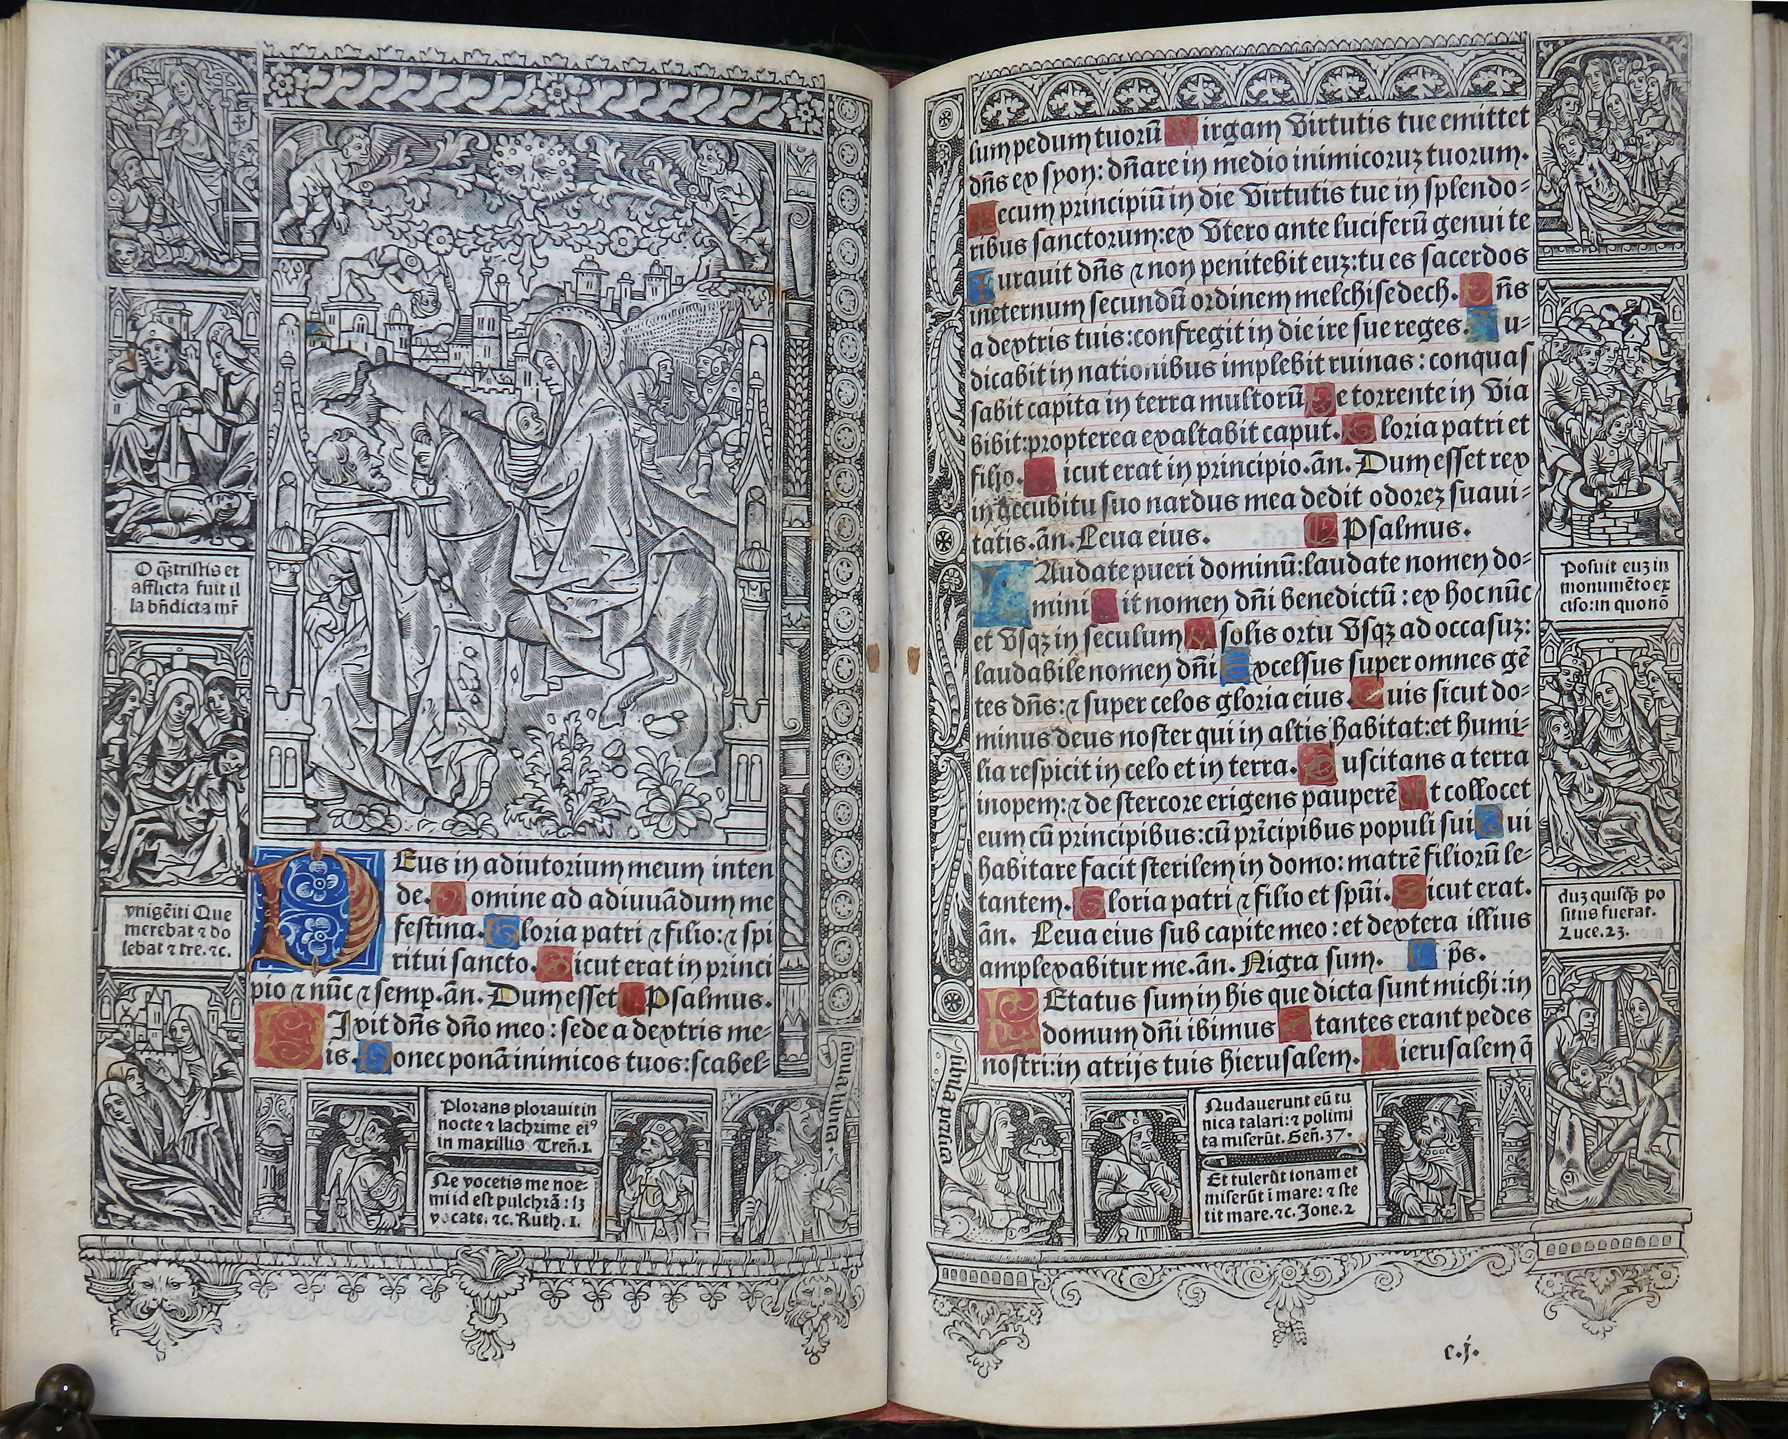 O q̄; tristis et
afflicta fuit il
la bn̄dicta mr̄
vnigēiti Que
merebat ⁊ do
lebat ⁊ tre. ⁊c.
DEus in adiutorium meum inten
de. Domine ad adiuuādum me
festina. Gloria patri ⁊ filio: ⁊ spi
ritui sancto. Sicut erat in princi
pio ⁊ nūc ⁊ semp̲. ān. Dum esset Psalmus.
DIxit dn̄s dn̄o meo: sede a dextris me-
is. Donec ponā inimicos tuos: scabel-
Plorans plorauit in
nocte ⁊ lachrime eiꝰ
in maxillis Treñ. 1.
Ne vocetis me noe-
mi id est pulchrā: sꝫ
vocate. ⁊c. Ruth. 1.
lum pedum tuorū Virgam virtutis tue emittet
dn̄s ex syon: dn̄are in medio inimicoruꝫ tuorum.
Tecum principiū in die virtutis tue in splendo-
ribus sanctorum: ex vtero ante luciferū genui te
Iurauit dn̄s ⁊ non penitebit euꝫ: tu es sacerdos
ineternum secundū ordinem melchisedech. Dn̄s
a dextris tuis: confregit in die ire sue reges. Iu-
dicabit in nationibus implebit ruinas: conquas
sabit capita in terra multorū De torrente in via
bibit: propterea exaltabit caput. Gloria patri et
filio. Sicut erat in principio. ān. Dum esset rex
in accubitu suo nardus mea dedit odoreꝫ suaui-
tatis. ān. Leua eius. Psalmus.
LAudate pueri dominū: laudate nomen do-
mini Sit nomen dn̄i benedictū: ex hoc nūc
et vsqꝫ in seculum A solis ortu vsqꝫ ad occasuꝫ:
laudabile nomen dn̄i Excelsus super omnes gē
tes dn̄s: ⁊ super celos gloria eius. Quis sicut do-
minus deus noster qui in altis habitat: et humi-
lia respicit in celo et in terra. Suscitans a terra
inopem: ⁊ de stercore erigens pauperē Vt collocet
eum cū principibus: cū pr̄cipibus populi sui Qui
habitare facit sterilem in domo: matrē filiorū le-
tantem. Gloria patri ⁊ filio et spūi. Sicut erat.
ān. Leua eius sub capite meo: et dextera illius
amplexabitur me. ān. Nigra sum. ps.
LEtatus sum in his que dicta sunt michi: in
domum dn̄i ibimus Stantes erant pedes
nostri: in atrijs tuis hierusalem. Hierusalem q̄
Posuit euꝫ in
monumēto ex
ciso: in quo nō
duꝫ quisq̄ꝫ po
situs fuerat.
Luce. 23.
Nudauerunt eū tu
nica talari: ⁊ polimi
ta miserūt. Geñ. 37.
Et tulerūt ionam et
miserūt ī mare: ⁊ ste
tit mare. ⁊c. Jone. 2
c.j.